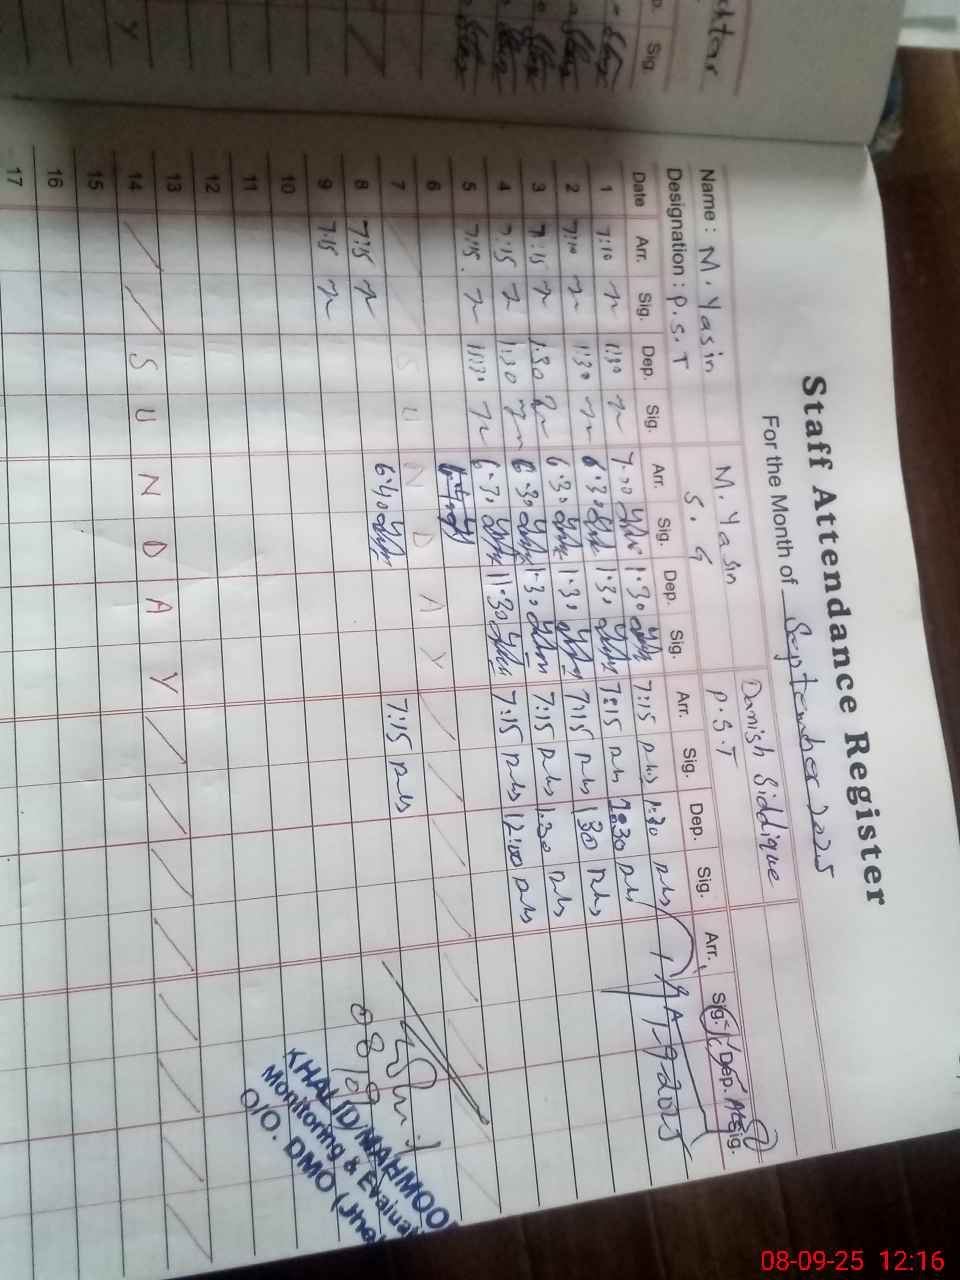 Staff Attendance Register
For the Month of September 2025
Name : M. Yasin M. Yasin Danish Siddique
Designation : P.S.T S.G P.S.T
Date Arr. Sig. Dep. Sig. Arr. Sig. Dep. Sig. Arr. Sig. Dep. Sig. Arr. Sig. Dep. Sig.
1 7:10 1:30 7:30 1:30 7:15 1:30
2 7:10 1:30 6:30 1:30 7:15 1:30
3 7:15 1:30 6:30 1:30 7:15 1:30
4 7:15 1:30 6:30 1:30 7:15 1:30
5 7:15 11:30 6:30 11:30 7:15 12:00
6
7 S U N D A Y
8 7:15 6:40 7:15
9 7:15
10
11
12
13
14 S U N D A Y
15
16
17
1-9-2025
08/09
KHALID MAHMOO
Monitoring & Evalua
O/O. DMO (Jhe
Sig.
Y
08-09-25 12:16